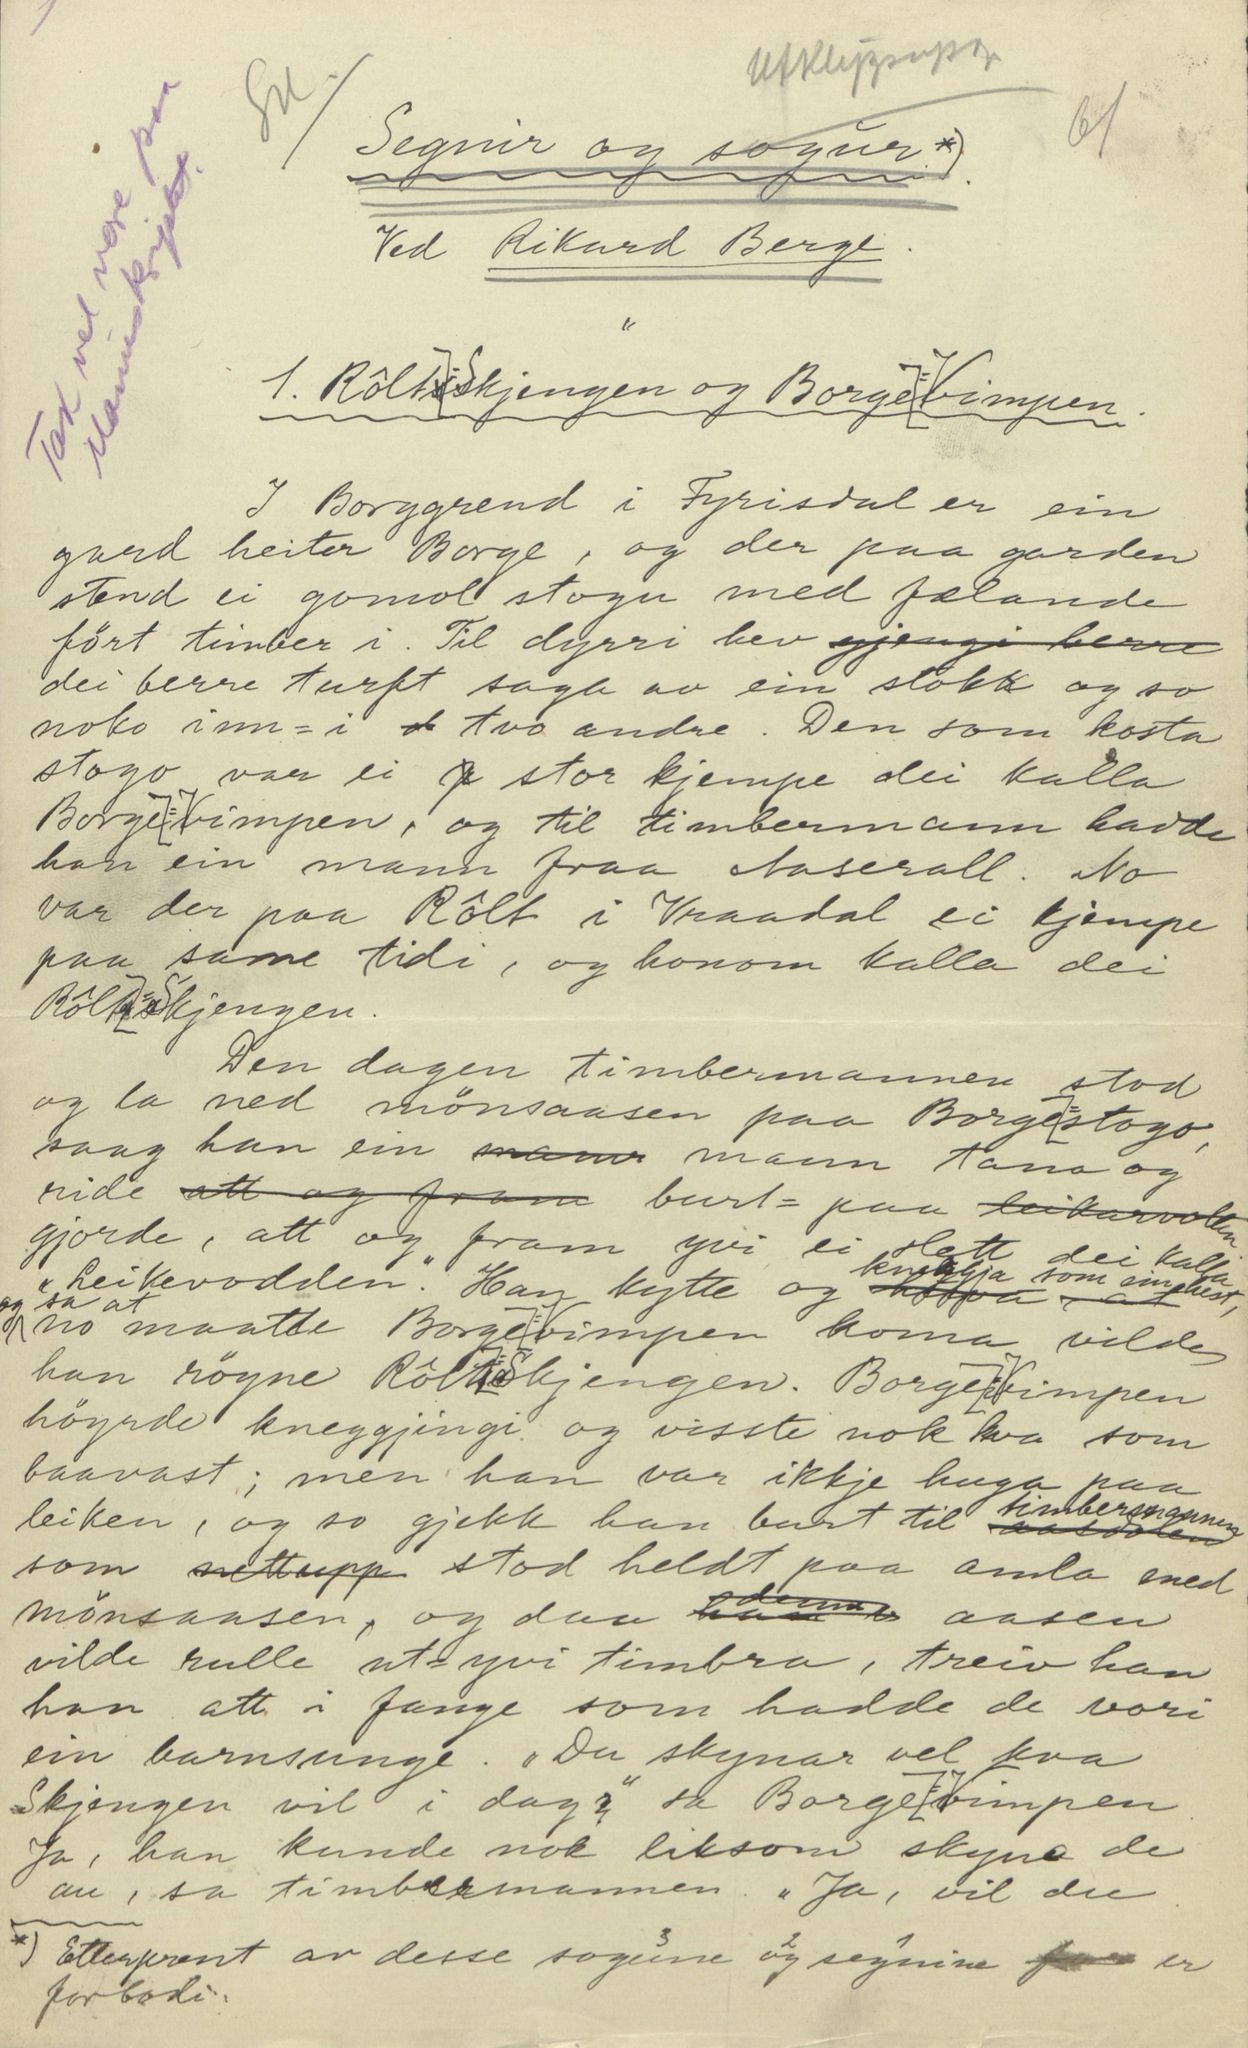 Utklyppsupp
Gd.
6/
Tak vel vare paa
Manuskriptet.
Segnir og sogur *)
Ved Rikard Berge.
"
1. Rôlt-Skjengen og Borge-Vimpen.
I Borggrend i Fyrisdal er ein
gard heiter Borge, og der paa garden
stend ei gomol stogu med fælande
fört timber i. Til dyrri hev gjengi berre
dei berre turft saga av ein stokk og so
noko inn-i tvo andre. Den som kosta
stogo var ei stor kjempe dei kalla
Borge-Vimpen, og til timbermann hadde
han ein mann fraa Aaserall. No
var der paa Rôlt i Vraadal ei kjempe
paa same tidi, og honom kalla dei
Rôlt-Skjengen.
Den dagen timbermannen stod
og la ned mönsaasen paa Borge-stogo,
saag han ein mann mann tana og
ride att og fram burt-paa leikarvollen
gjorde, att og fram yvi ei slett dei kalla
"Leikevodden". Han kytte og kneggja som ein hest,
og sa at
no maatte Borge-Vimpen koma vilde
han röyne Rôlt-Skjengen. Borge-Vimpen
höyrde kneggjingi og visste nok kva som
baavast; men han var ikkje huga paa
leiken, og so gjekk han burt til timbermannen
som nettupp stod heldt paa amla med
mönsaasen, og daa denne aasen
vilde rulle ut-yvi timbra, treiv han
han att i fange som hadde de vori
ein barnsunge. "Du skynar vel kva
Skjengen vil i dag?" sa Borge-Vimpen
Ja, han kunde nok liksom skyna de
au, sa timbermannen. "Ja, vil du
*) Etterprent av desse sogune og segnine er
forbodi.